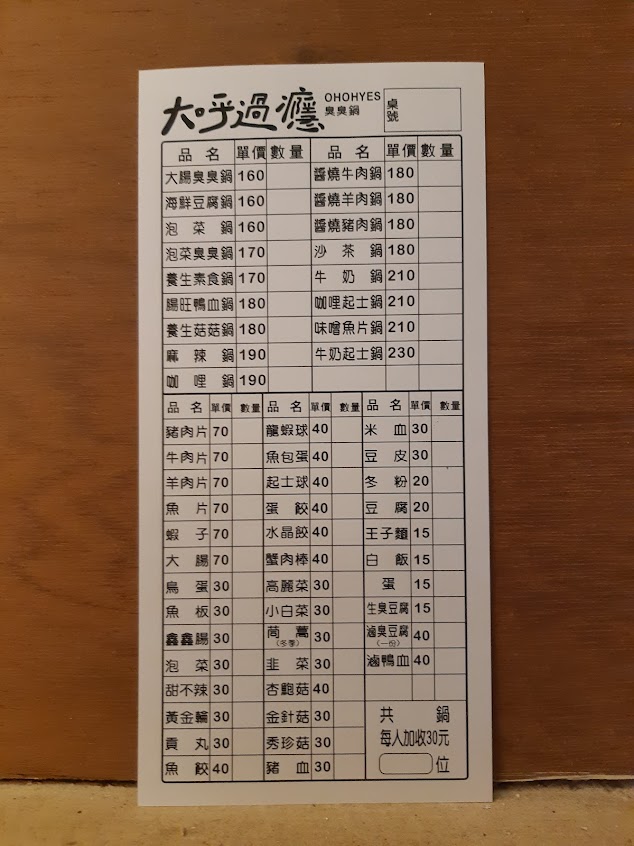 大呼過癮 OHOHYES 臭臭鍋 桌號
品名 單價 數量 品名 單價 數量
大腸臭臭鍋 160 醬燒牛肉鍋 180
海鮮豆腐鍋 160 醬燒羊肉鍋 180
泡菜鍋 160 醬燒豬肉鍋 180
泡菜臭臭鍋 170 沙茶鍋 180
養生素食鍋 170 牛奶鍋 210
腸旺鴨血鍋 180 咖哩起士鍋 210
養生菇菇鍋 180 味噌魚片鍋 210
麻辣鍋 190 牛奶起士鍋 230
咖哩鍋 190
品名 單價 數量 品名 單價 數量 品名 單價 數量
豬肉片 70 龍蝦球 40 米血 30
牛肉片 70 魚包蛋 40 豆皮 30
羊肉片 70 起士球 40 冬粉 20
魚片 70 蛋餃 40 豆腐 20
蝦子 70 水晶餃 40 王子麵 15
大腸 70 蟹肉棒 40 白飯 15
鳥蛋 30 高麗菜 30 蛋 15
魚板 30 小白菜 30 生臭豆腐 15
鑫鑫腸 30 茼蒿(冬季) 30 滷臭豆腐(一份) 40
泡菜 30 韭菜 30 滷鴨血 40
甜不辣 30 杏鮑菇 40
黃金輪 30 金針菇 30 共鍋
貢丸 30 秀珍菇 30 每人加收30元
魚餃 40 豬血 30 位